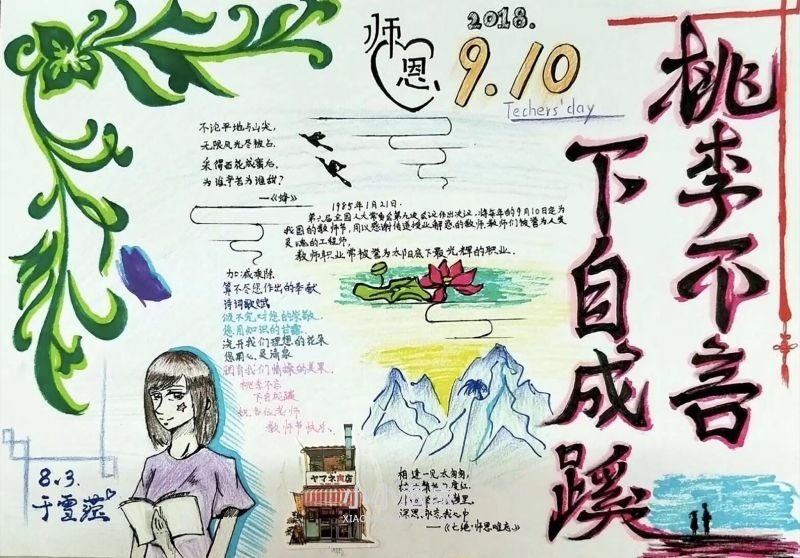 师恩
2018.
9.10
Techers' day
桃李不言
下自成蹊
不论平地与山尖,
无限风光尽被占.
采得百花成蜜后,
为谁辛苦为谁甜?
——《蜂》
1985年1月21日.
第六届全国人大常委会第九次会议作出决议,将每年的9月10日定为
我国的教师节,用以感谢传道授业解惑的教师.教师们被誉为人类
灵魂的工程师.
教师职业常被誉为太阳底下最光辉的职业.
加减乘除
算不尽您作出的奉献
诗词歌赋
颂不完对您的崇敬
您用知识的甘露
浇开我们理想的花朵
您用心灵清泉
润育我们情操的美果.
桃李不言
下自成蹊
祝各位老师
教师节快乐.
8.3.
于雪莲
ヤマネ肉店
XIAO
相逢一见太匆匆,
里
深恩永志我心中
——《七绝·师恩难忘》